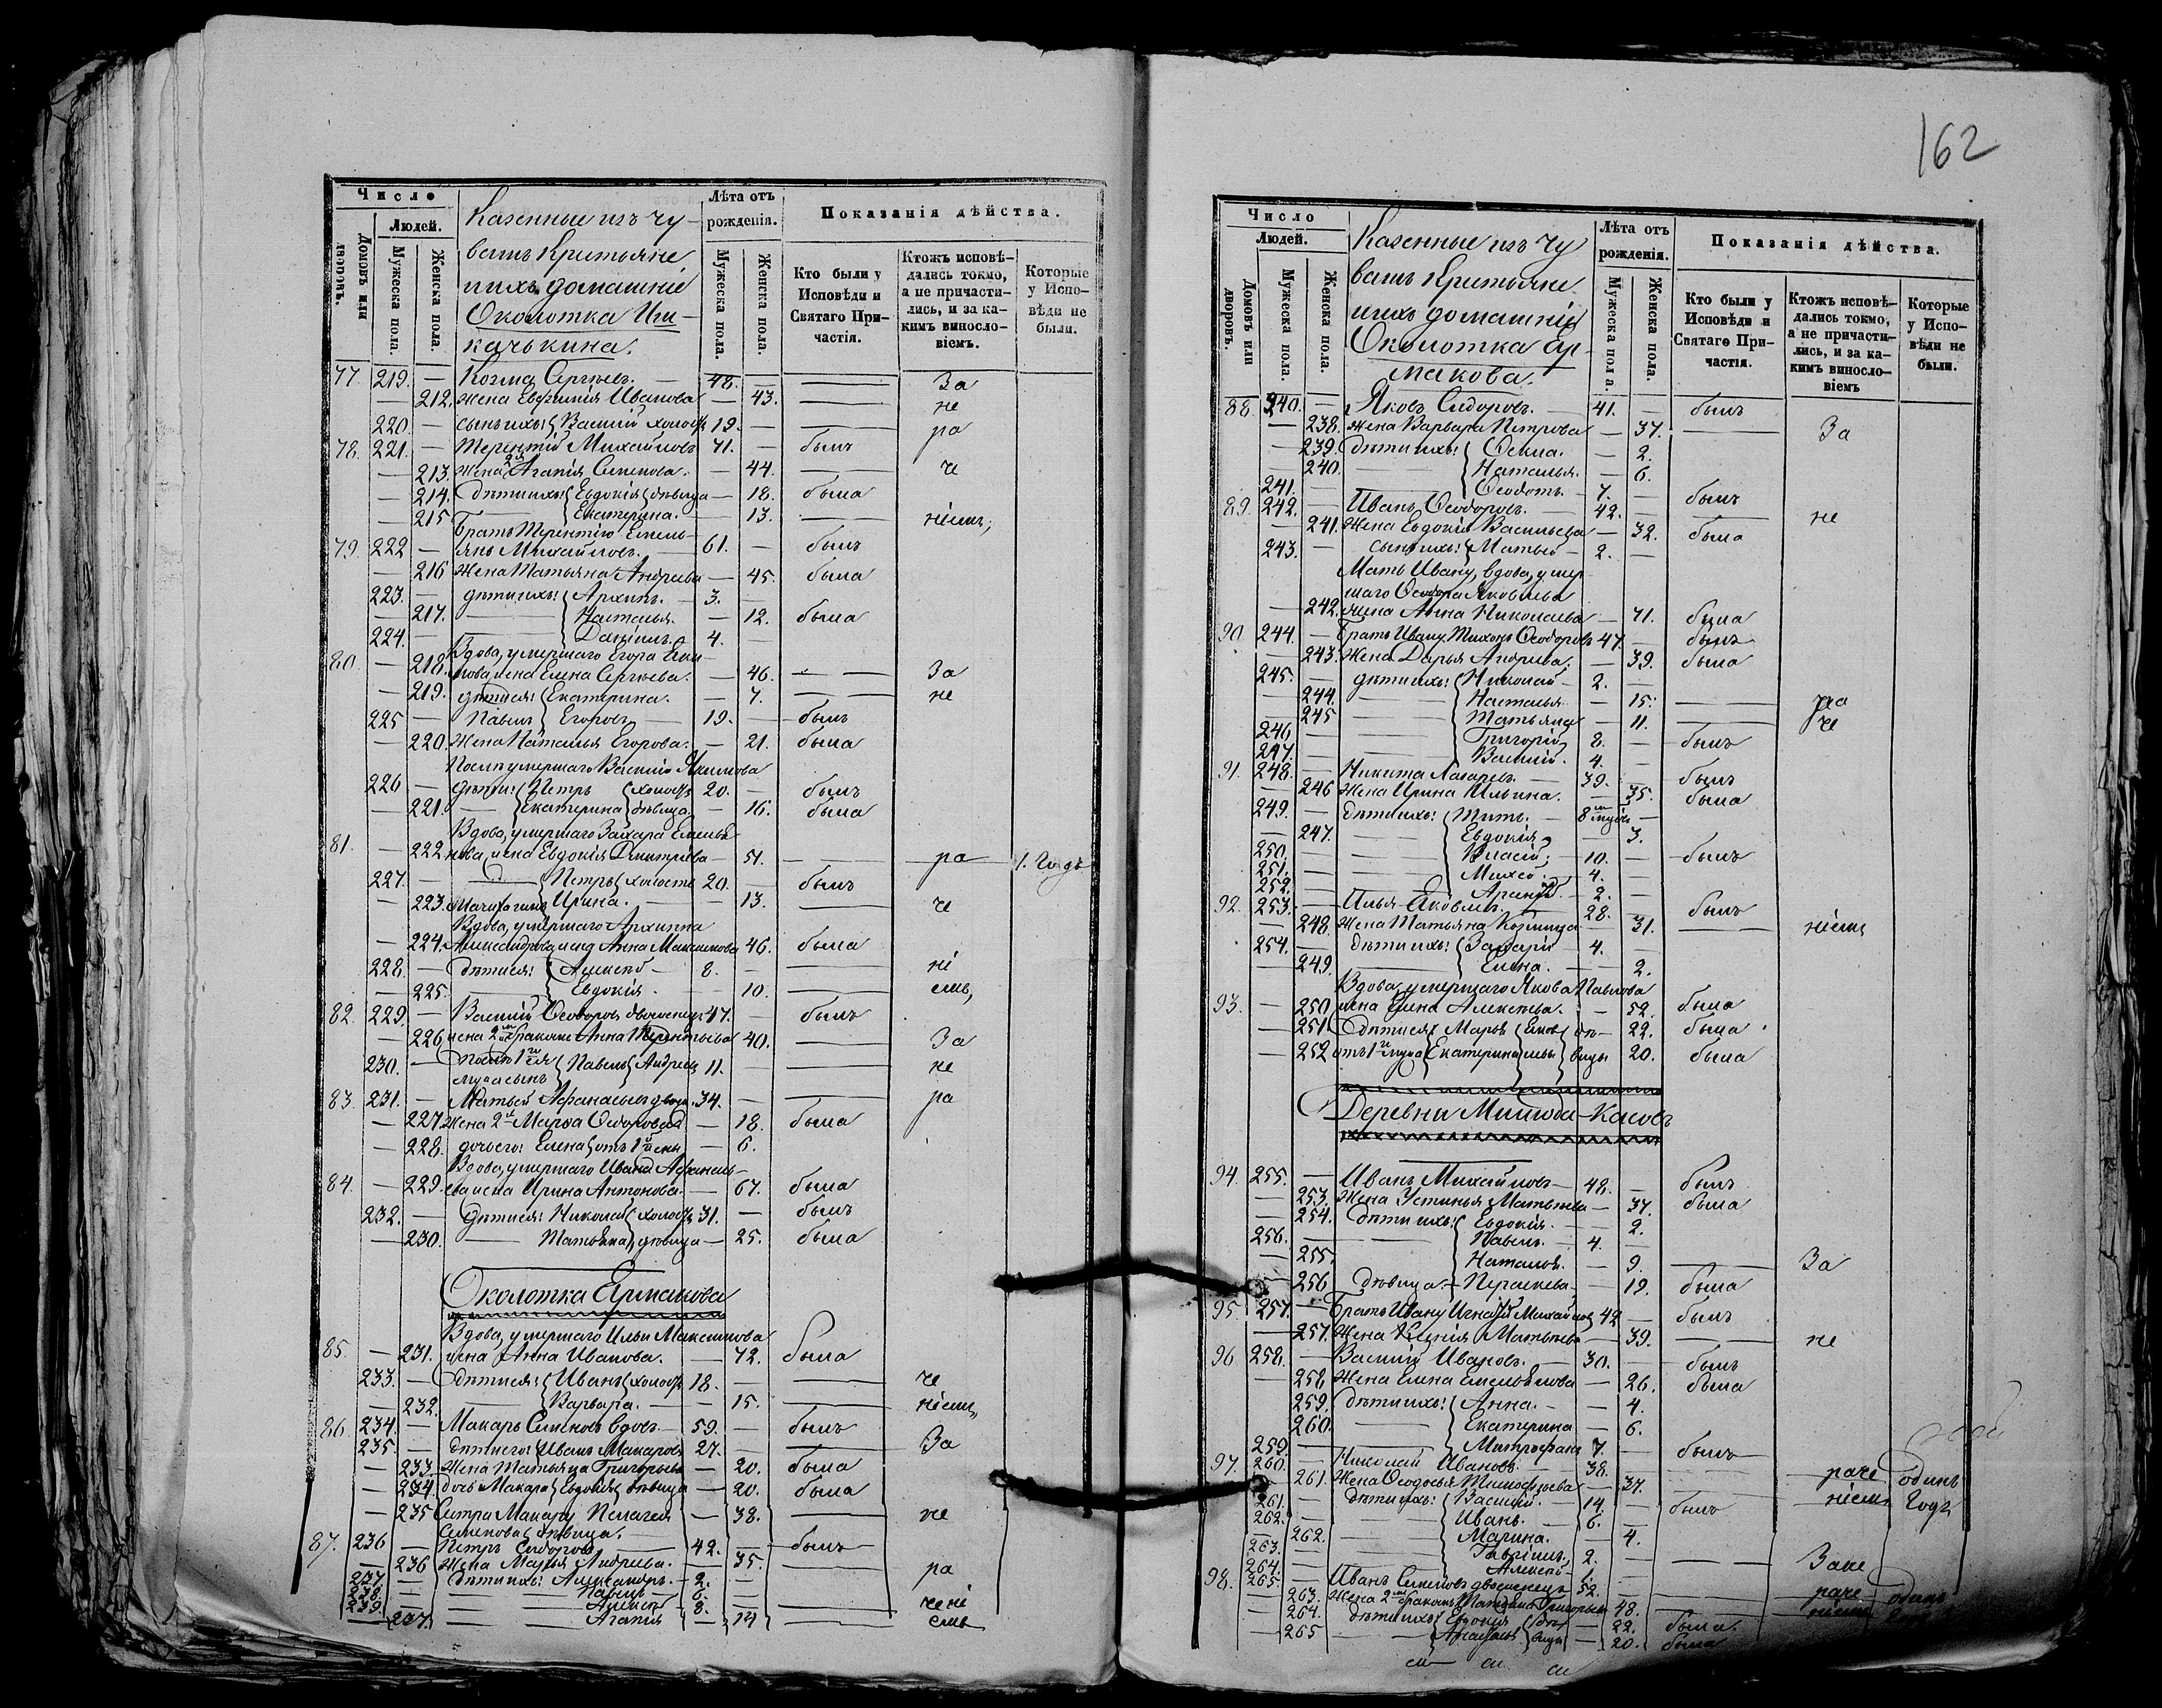 162
Число
Людей.
Домовъ или дворовъ.
Мужеска пола.
Женска пола.
Казенные изъ чу-
вашъ Крестьяне
и ихъ домашніе
Околотка Ши-
качькина.
Лѣта отъ рожденія.
Мужеска пола.
Женска пола.
Показанія дѣйства.
Кто были у Исповѣди и Святаго Причастія.
Ктожъ исповѣдались токмо, а не причастились, и за какимъ винословіемъ.
Которые у Исповѣди не были.
77. 219. — Козма Сергѣевъ. — 48. — За
— 212. Жена Евфимія Иванова — 43. — не
220. — сынъ ихъ: Василій холостъ 19. — ра
78. 221. — Терентій Михайловъ 71. — былъ
— 213. Жена 2я Агапія Семенова. — 44. — че
— 214. Дѣти ихъ: Евдокія дѣвица — 18. была
— 215 Екатерина. — 13. — ніемъ,
Братъ Терентію Емель-
79. 222 — янъ Михайловъ. 61. — былъ
— 216 Жена Татьяна Андреева — 45. была
223. — дѣти ихъ: Архипъ. — 3. —
— 217. Наталья. — 12. была
224. — Даніилъ. 4. —
Вдова, умершаго Егора Еки-
80. — 218. мова жена Елена Сергѣева. — 46. — За
— 219. дѣти ея: Екатерина. — 7. — не
225 — Павелъ Егоровъ — 19. — былъ
— 220. Жена Наталья Егорова. — 21. была
После умершаго Василія Якимова
226 — дѣти: Петръ холостъ 20. — былъ
— 221. Екатерина дѣвица — 16. была
Вдова, умершаго Захара Емелья-
81. — 222 нова жена Евдокія Дмитріева — 51. — ра 1. Годъ
227. — Петръ холостъ 20. — былъ
— 223. Ирина. — 13. — че
Вдова, умершаго Архиппа
— 224. Александрова жена Анна Максимова 46. была
228. — Дѣти ея: Алексѣй — 8. — ні
— 225. Евдокія. — 10. — емъ,
82. 229. — Василій Ѳеодоровъ двоеженецъ 47. — былъ
— 226 жена 2мъ бракомъ Анна Терентьева 40. — За
230. — Павелъ Андреевъ 11. — не
мужа сынъ
83. 231. — Матвей Афанасьевъ 34. — ра
— 227. Жена 2я Марѳа Ѳеодорова — 18. была
— 228. дочь его: Елена отъ 1й жены — 6.
Вдова, умершаго Ивана Афанась-
84. — 229. ева жена Ирина Антонова. — 67. была
232. — Дѣти ея: Николай холостъ 31. — былъ
— 230. Татьяна дѣвица — 25. была
Околотка Ермакова
Вдова, умершаго Ильи Максимова
85. — 231. жена Анна Иванова. — 72. была
233. — Дѣти ея: Иванъ холостъ 18. — че
— 232. Варвара. — 15. — ніемъ,
86. 234. — Макаръ Семеновъ вдовъ 59. — былъ
235. — дѣти его: Иванъ Макаровъ 27. — За
— 233. Жена Татьяна Григорьева — 20. была
— 234. дочь Макара Евдокія дѣвица — 20. была
— 235 Сестра Макару Пелагея — 38. — не
Семенова дѣвица.
87. 236 — Петръ Сидоровъ — 42. — былъ
— 236 Жена Марья Андреева. — 35. — ра
237. — Дѣти ихъ: Александръ. — 2. —
238. — Павелъ — 6. —
239. — Алексѣй — 8. — чені
— 237. Агапія — 14 — емъ
Число
Людей.
Домовъ или дворовъ.
Мужеска пола.
Женска пола.
Казенные изъ чу
вашъ Крестьяне
и ихъ домашніе
Околотка Ер-
макова.
Лѣта отъ рожденія.
Мужеска пола.
Женска пола.
Показанія дѣйства.
Кто были у Исповѣди и Святаго Причастія.
Ктожъ исповѣдались токмо, а не причастились, и за какимъ винословіемъ
Которые у Исповѣди не были.
88. 240. — Яковъ Сидоровъ. — 41. — былъ
— 238. Жена Варвара Петрова — 37. — За
— 239. Дѣти ихъ: Ѳекла. — 2.
240. Наталья. — 6.
241. — Ѳеодотъ. — 7. — былъ
89. 242. — Иванъ Ѳеодоровъ. — 42. — не
— 241. Жена Евдокія Васильева — 32. была
243. — сынъ ихъ: Матвей — 2. —
Мать Ивану, вдова, умер-
шаго Ѳеодора Яковлева
— 242. жена Анна Николаева — 71. была
90. 244. — Братъ Ивану Тихонъ Ѳеодоровъ 47. — былъ
— 243. Жена Дарья Андреева. — 39. была
245. — дѣти ихъ: Николай — 2. —
— 244. Наталья — 15. — ра
— 245 Татьяна — 11. — че
246. — Григорій 8. — былъ
247. — Василій. 4. —
91. 248. — Никита Лазаревъ. — 39. — былъ
— 246 Жена Ирина Ильина. — 35. была
249. — Дѣти ихъ: Титъ. — 8 —
— 247. Евдокія — 3.
250. — Власій; — 10. — былъ
251. — 4. —
252. — 2. —
92. 253. — Илья Яковлевъ. — 28. — былъ
— 248. Жена Татьяна Козмина — 31. — ніемъ
254. — дѣти ихъ: Захарій — 4. —
— 249. Елена. — 2.
Вдова, умершаго Якова Павлова
93. — 250 жена Елена Алексѣева. — 52. была
— 251. Дѣти ея Марья 22. была
— 252 отъ 1го мужа Екатерина 20. была
Деревни
94. 255. — Иванъ Михайловъ — 48. — былъ
— 253. Жена Устинья Матвѣева — 37. была
— 254. Дѣти ихъ: Евдокія. — 2.
256. — Павелъ. — 4. —
— 255. Наталья. — 9. — За
— 256 дѣвица — Параскева — 19. была
95. 257. — Братъ Ивану Игнатій Михайловъ 42 — былъ
— 257. Жена Ксенія Матвѣева — 39. — не
96 258. — Василій Ивановъ. — 30. — былъ
— 258 Жена Елена Емельянова — 26. была
259. Дѣти ихъ: Анна. — 4.
260. Екатерина — 6.
259. — Митрофанъ 7. — былъ
97. 260. — Николай Ивановъ. 38. — раче одинъ
— 261. Жена Ѳеодосья Тимофѣева — 37. — ніемъ Годъ
261. — дѣти ихъ: Василій. — 14. — былъ
262. — Иванъ. — 6. —
— 262. Марина. — 4.
263. — Гавріилъ, 2. — Зане
264. — Алексѣй — 1. —
98. 265. — Иванъ Семеновъ двоеженецъ 52. — раче одинъ
— 263. Жена 2мъ бракомъ Григорьева 48. — ніемъ
— 264. Дѣти ихъ Евдокія — 22. была.
— 265 — 20. была